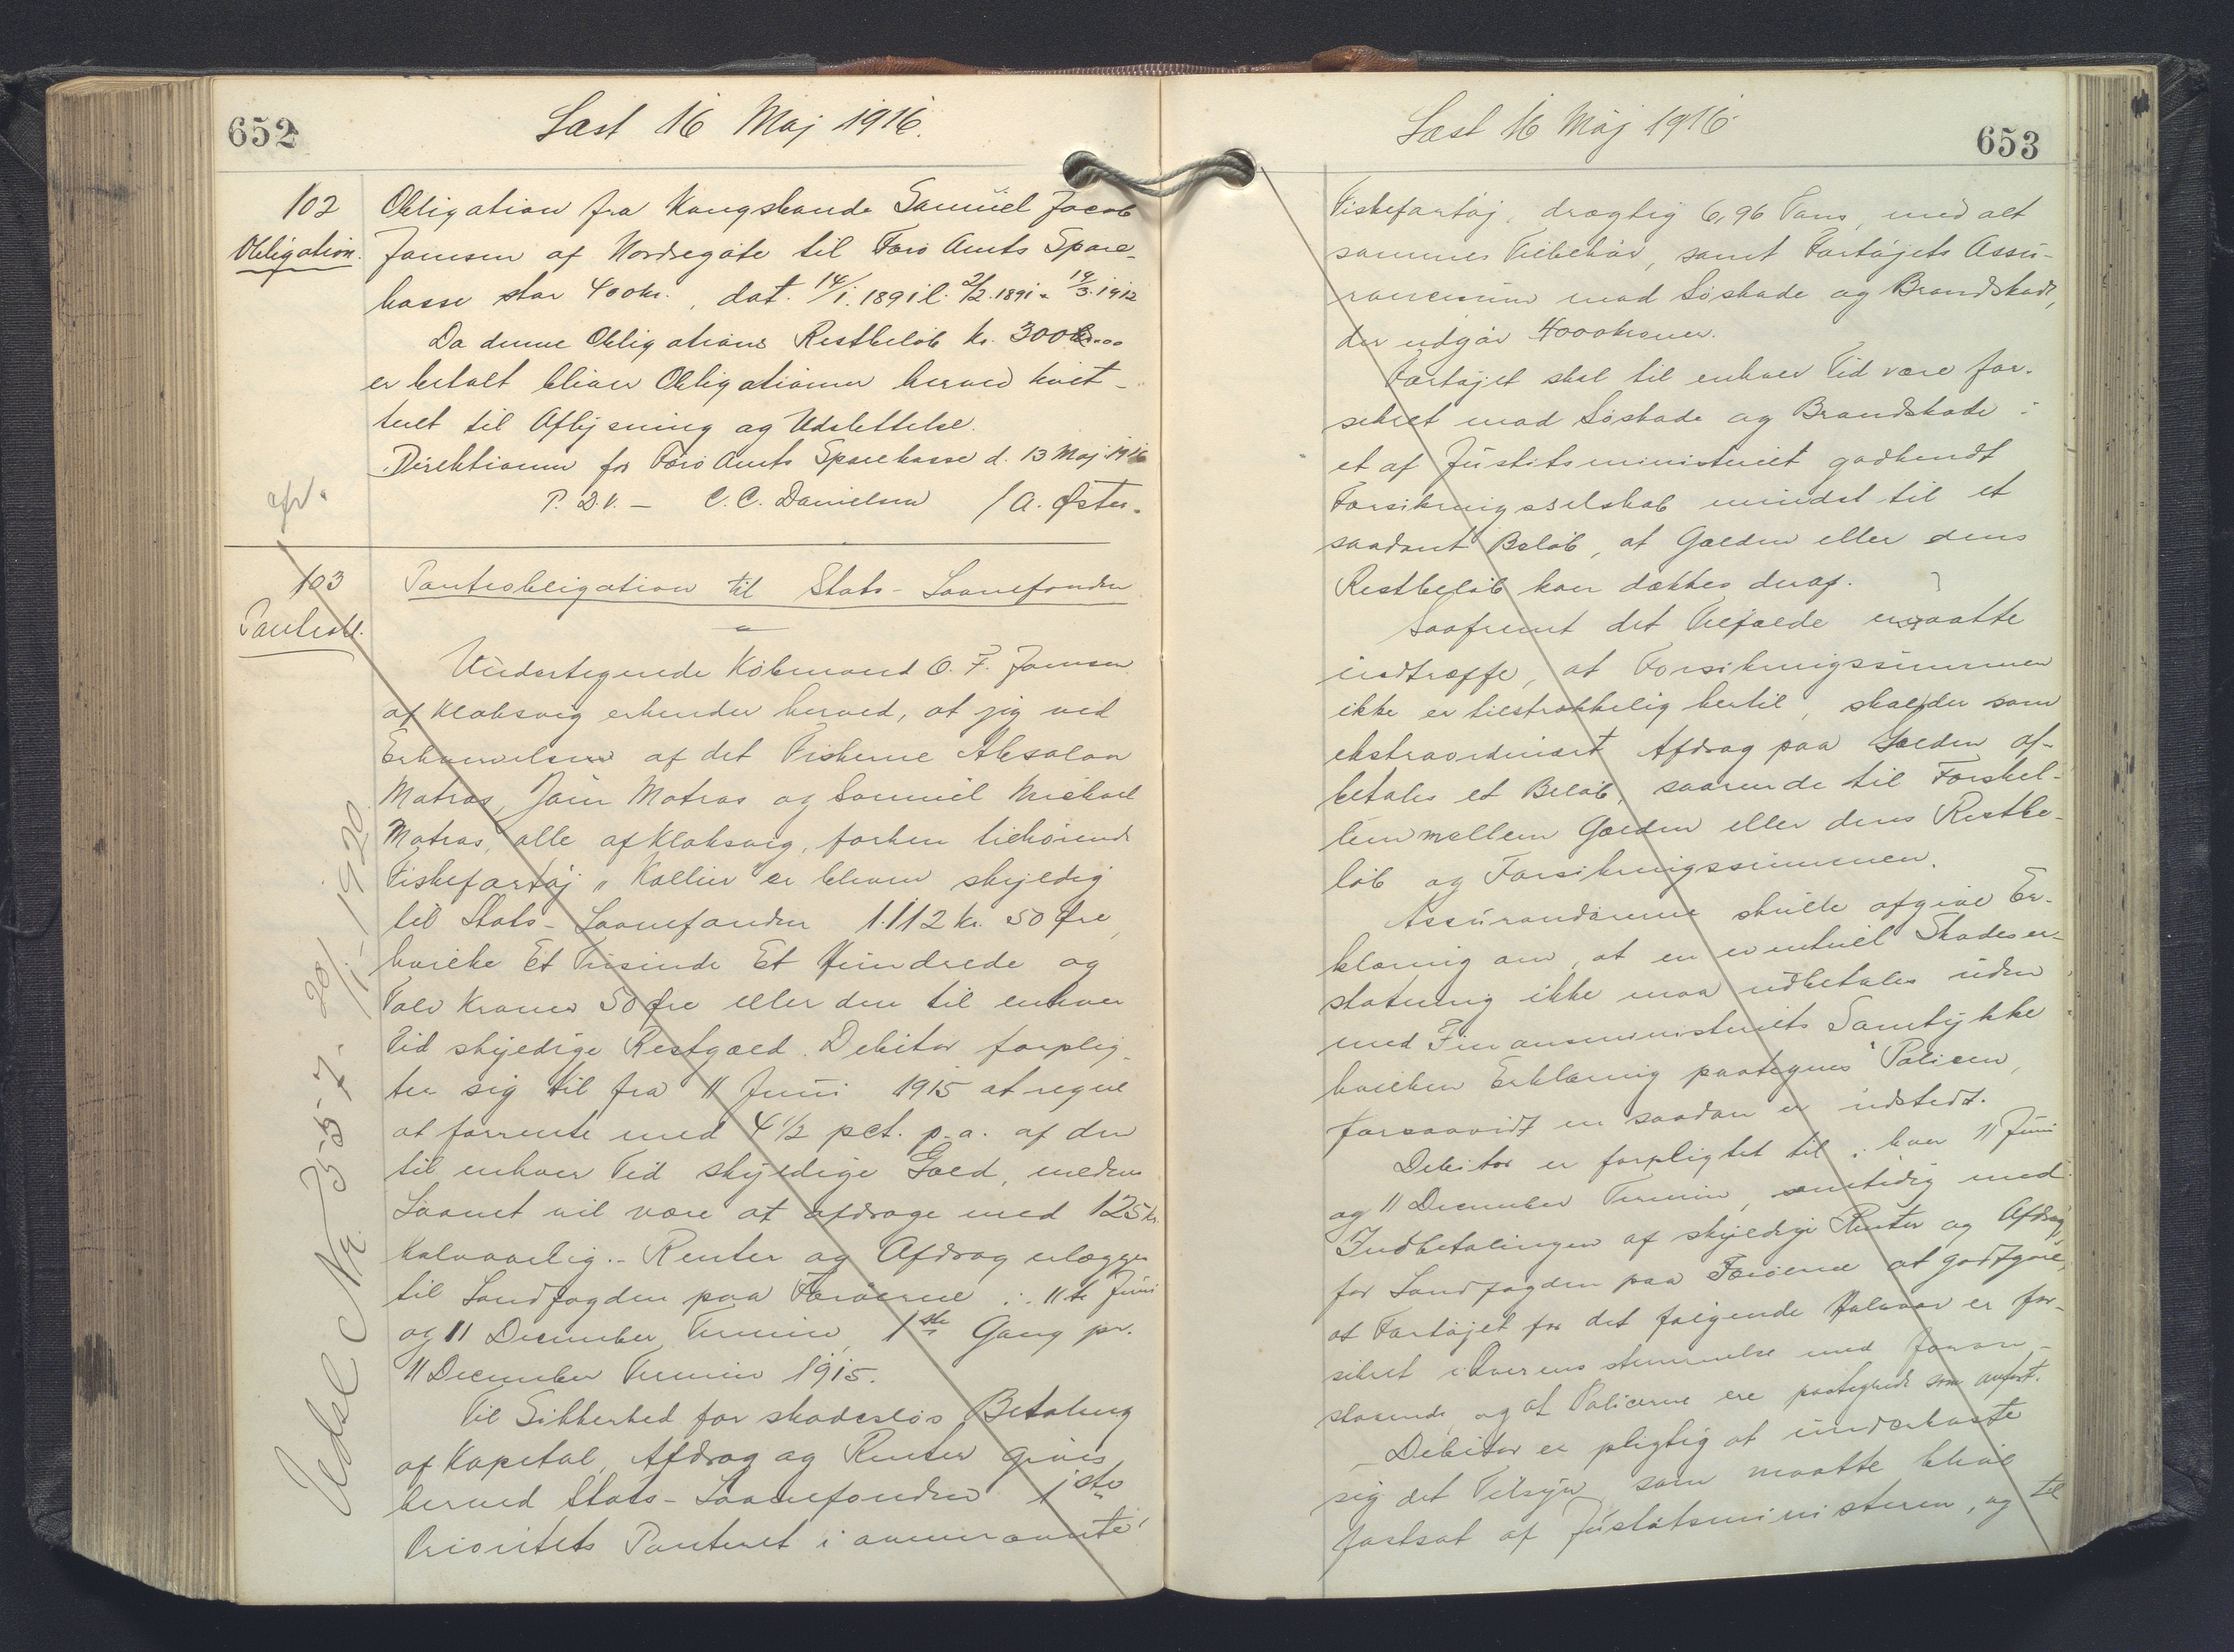 652
Læst 16 Maj 1916.
102
Obligation.
Obligation fra Kongsbonde Samuel Jacob
Joensen af Nordregøte til Færø Amts Spare-
kasse stor 400 kr., dat. 14/1. 1891 l. 2/2. 1891 - 19/3. 1912
Da denne Obligations Restbeløb kr. 300
er betalt bliver Obligationen herved kvit-
teret til Aflysning og Udslettelse.
Direktionen for Færø Amts Sparekasse d. 13 Maj 1916
P. D. V. — C. C. Danielsen / A. Øster.
afl.
103
Panteobl.
Panteobligation til Stats-Laanefonden
Undertegnede Købmand O. F. Joensen
af Klaksvig erkender herved, at jeg ved
Erhvervelsen af det Fiskerne Absalon
Matras, Jóin Matras og Samuel Michael
Matras, alle af Klaksvig, forhen tilhørende
Fiskefartøj "Kallur" er bleven skyldig
til Stats-Laanefonden 1.112 kr. 50 Øre,
hvilke Et Tusinde Et Hundrede og
Tolv Kroner 50 Øre eller den til enhver
Tid skyldige Restgæld. Debitor forplig-
ter sig til fra 11 Juni 1915 at regne
at forrente med 4 1/2 pct. p. a. af den
til enhver Tid skyldige Gæld, medens
Laanet vil være at afdrage med 125 kr.
halvaarlig. - Renter og Afdrag erlægges
til Landfogden paa Færøerne i 11te Juni
og 11 December Termin, 1ste Gang pr.
11 December Termin 1915.
Til Sikkerhed for skadesløs Betaling
af Kapital, Afdrag og Renter gives
herved Stats-Laanefonden 1ste
Prioritets Panteret i ommeramte
Udsl. Nr. 55-7- 20/1-1920
Læst 16 Maj 1916.
653
Fiskefartøj, drægtig 6,96 Tons, med alt
sammes Tilbehør, samt Fartøjets Assu-
rancesum mod Søskade og Brandskade,
der udgør 4000 kroner.
Fartøjet skal til enhver Tid være for-
sikret mod Søskade og Brandskade i
et af Justitsministeriet godkendt
Forsikringsselskab mindst til et
saadant Beløb, at Gælden eller dens
Restbeløb kan dækkes deraf.
Saafremt det Tilfælde maatte
indtræffe, at Forsikringssummen
ikke er tilstrækkelig hertil, skal der som
ekstraordinært Afdrag paa Gælden af-
betales et Beløb, svarende til Forskel-
len mellem Gælden eller dens Restbe-
løb og Forsikringssummen.
Assurandørerne skulle afgive Er-
klæring om, at en eventuel Skadeser-
statning ikke maa udbetales uden
med Finansministeriets Samtykke
hvilken Erklæring paategnes Policen,
forsaavidt en saadan er udstedt.
Debitor er forpligtet til i hver 11 Juni
og 11 December Termin, samtidig med
Indbetalingen af skyldige Renter og Afdrag,
for Landfogden paa Færøerne at godtgøre,
at Fartøjet for det følgende Halvaar er for-
sikret i Overensstemmelse med foran-
staaende, og at Policerne ere paategnede som anført.
Debitor er pligtig at underkaste
sig det Tilsyn, som maatte blive
fastsat af Justitsministeren, og til